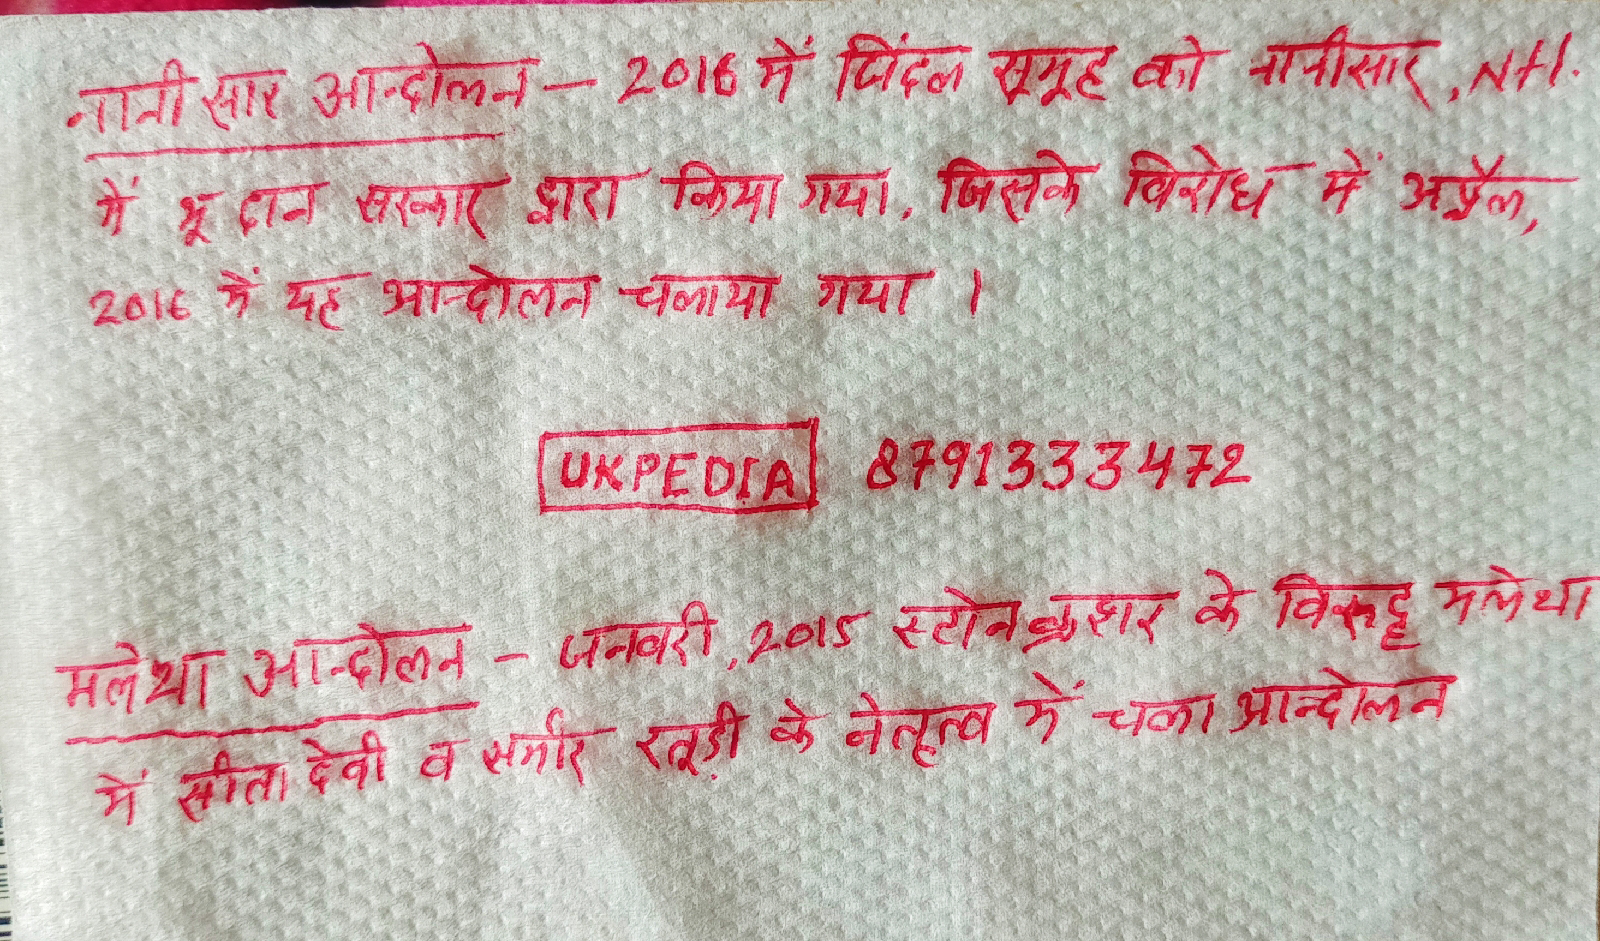 नानीसार आन्दोलन – 2016 में जिंदल समूह को नानीसार,
में भू दान सरकार द्वारा किया गया, जिसके विरोध में अप्रैल,
2016 में यह आन्दोलन चलाया गया ।
UKPEDIA 8791333472
मलेथा आन्दोलन – जनवरी, 2015 स्टोन क्रुशर के विरूद्ध मलेथा
में सीता देवी व समीर रतूड़ी के नेतृत्व में चला आन्दोलन